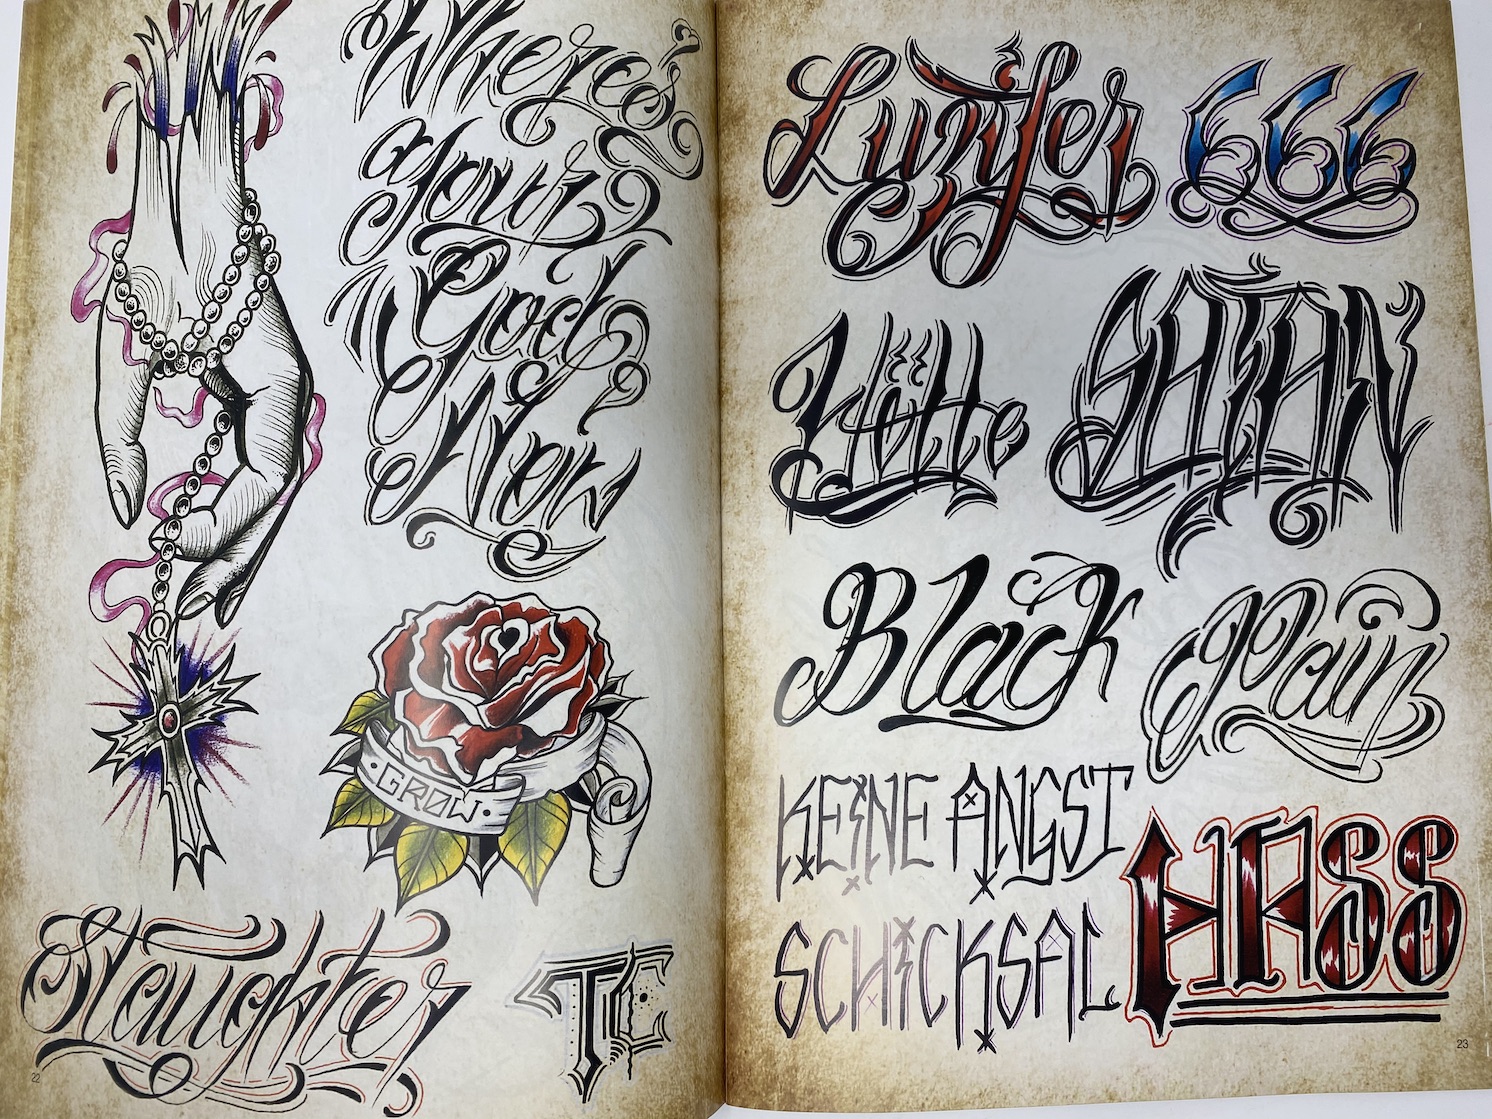 Where's
your
God
Now
GROW
Slaughter
TC
22
Luzifer 666
Hölle SATAN
Black pain
KEINE ANGST
SCHICKSAL
HASS
23